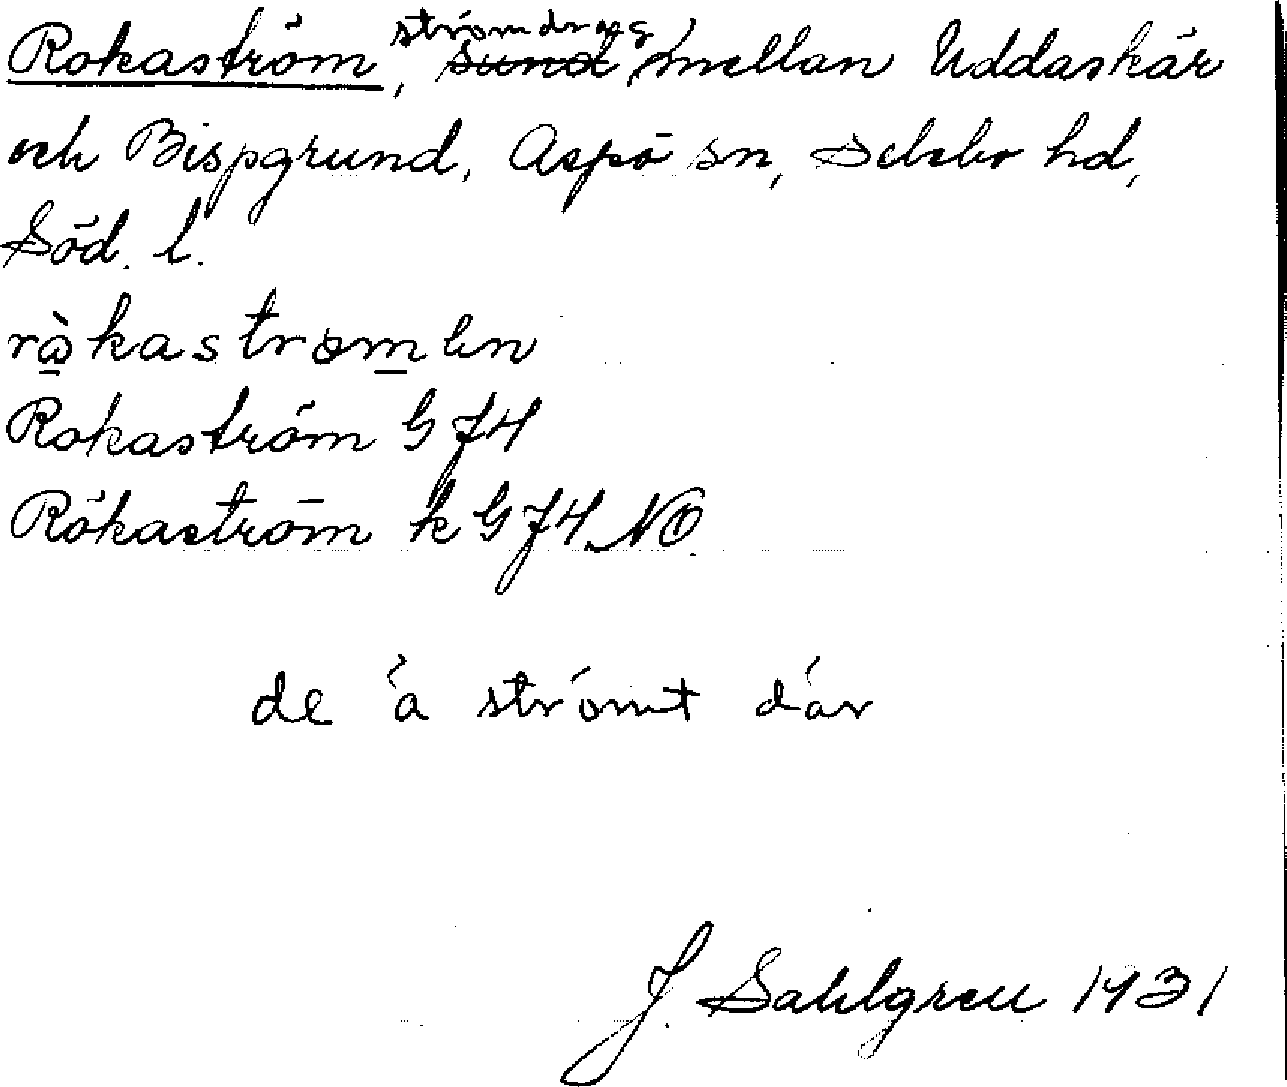 Rokaström, strömdrag mellan Uddaskär
och Bispgrund, Aspö sn, Selebo hd,
Söd. l.
rò̲kastrøm̲en
Rokaström G J4
Rökaström k G J4 NO
de ä strömt där
J. Sahlgren 1931